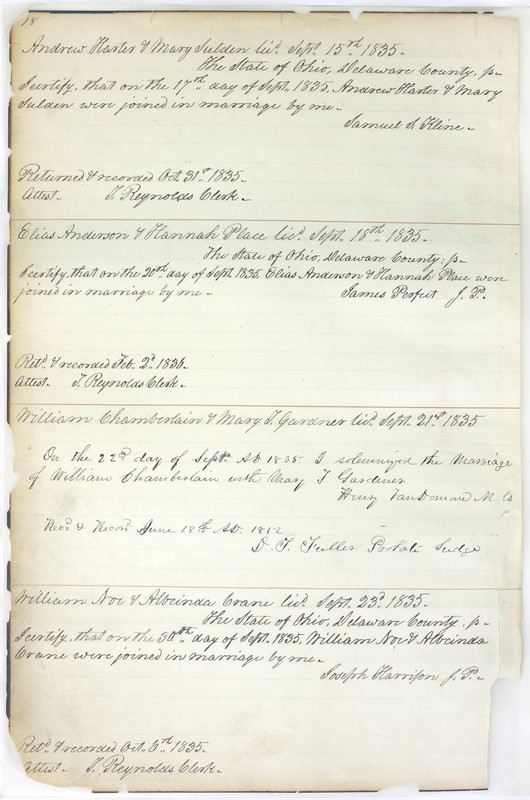 18
Andrew Harter & Mary Sulden licd. Sept. 15th 1835.
The State of Ohio, Delaware County, ss.
I certify, that on the 17th day of Sept. 1835. Andrew Harter & Mary
Sulden were joined in marriage by me.
Samuel S. Kline.
Returned & recorded Oct. 31st 1835.
Attest. T. Reynolds Clerk.
Elias Anderson & Hannah Place licd. Sept. 18th 1835.
The State of Ohio, Delaware County: ss.
I certify, that on the 20th day of Sept. 1835. Elias Anderson & Hannah Place were
joined in marriage by me. James Perfect J. P.
Retd. & recorded Feb. 2d. 1836.
Attest. T. Reynolds Clerk.
William Chamberlain & Mary T. Gardner licd. Sept. 21st 1835
On the 22nd day of Sept. AD 1835 I solemnized the Marriage
of William Chamberlain with Mary T Gardner
Henry VanDeman M.
Recd & Record June 18th AD.
D. T. Fuller Probate Judge
William Noe & Albcinda Crane licd. Sept. 23d. 1835.
The State of Ohio, Delaware County, ss.
I certify, that on the 30th day of Sept. 1835. William Noe & Albcinda
Crane were joined in marriage by me.
Joseph Harrison J. P.
Retd. & recorded Oct. 6th 1835.
Attest. T. Reynolds Clerk.